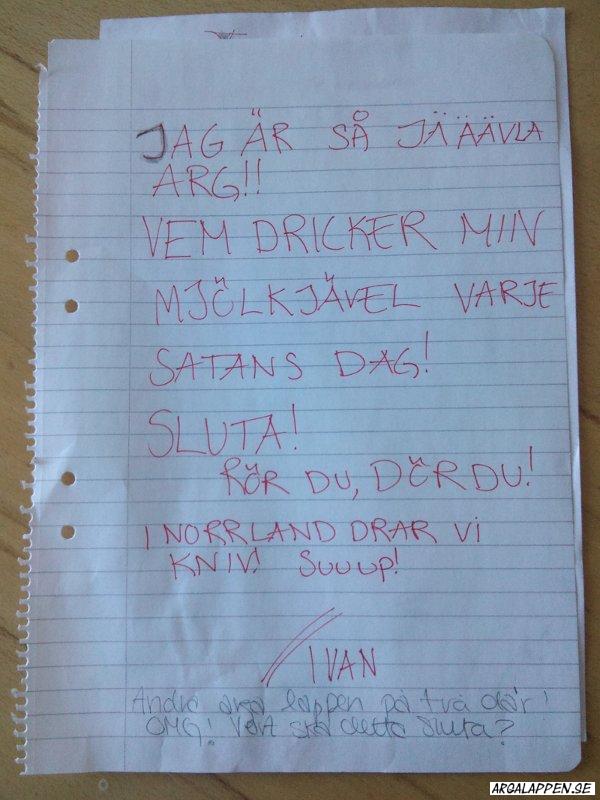 JAG ÄR SÅ JÄÄÄVLA
ARG!!
VEM DRICKER MIN
MJÖLKJÄVEL VARJE
SATANS DAG!
SLUTA!
RÖR DU, DÖR DU!
I NORRLAND DRAR VI
KNIV! SUUUP!
// IVAN
Andra arga lappen på två da'r!
OMG! Vart ska detta sluta?
ARGALAPPEN.SE